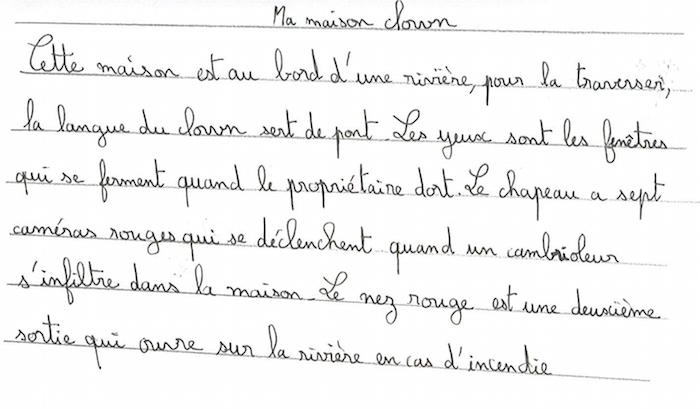 Ma maison clown
Cette maison est au bord d'une rivière, pour la traverser,
la langue du clown sert de pont. Les yeux sont les fenêtres
qui se ferment quand le propriétaire dort. Le chapeau a sept
caméras rouges qui se déclenchent quand un cambrioleur
s'infiltre dans la maison. Le nez rouge est une deuxième
sortie qui ouvre sur la rivière en cas d'incendie